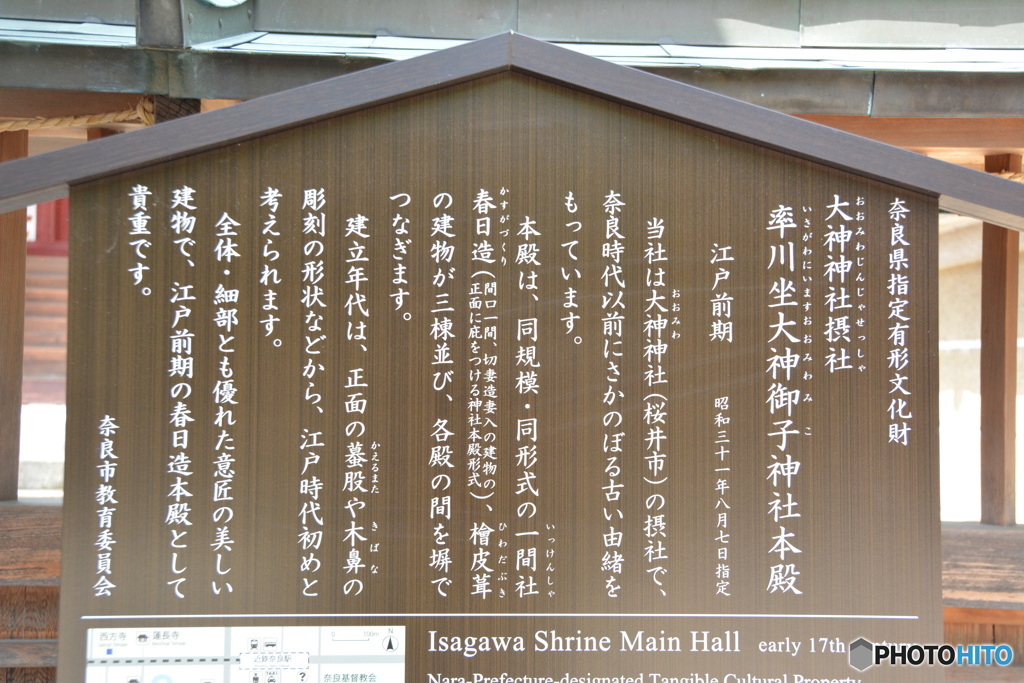 奈良県指定有形文化財
おおみわじんじゃせっしゃ
大神神社摂社
いさがわにいますおおみわみこ
率川坐大神御子神社本殿
江戸前期
昭和三十一年八月七日指定
おおみわ
当社は大神神社（桜井市）の摂社で、
奈良時代以前にさかのぼる古い由緒を
もっています。
いっけんしゃ
本殿は、同規模・同形式の一間社
かすがづくり
ひわだぶき
春日造（間口一間、切妻造妻入の建物の
正面に庇をつける神社本殿形式）、檜皮葺
の建物が三棟並び、各殿の間を塀で
つなぎます。
かえるまた
きばな
建立年代は、正面の蟇股や木鼻の
彫刻の形状などから、江戸時代初めと
考えられます。
全体・細部とも優れた意匠の美しい
建物で、江戸前期の春日造本殿として
貴重です。
奈良市教育委員会
西方寺
蓮長寺
100m
N
近鉄奈良駅
奈良基督教会
TAXI
?
Isagawa Shrine Main Hall early 17th
Nara-Prefecture-designated Tangible Cultural Property
PHOTOHITO